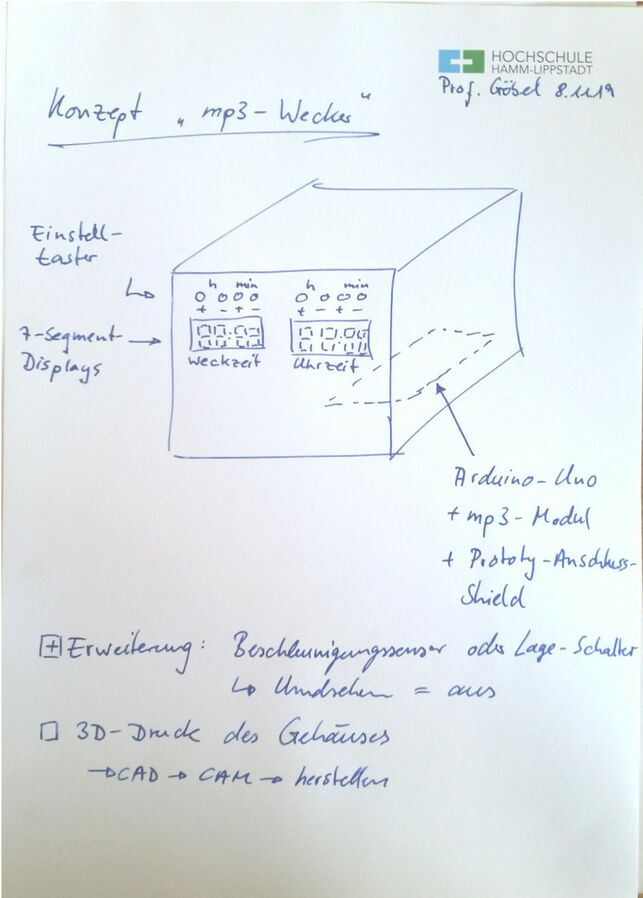 HOCHSCHULE
HAMM-LIPPSTADT
Prof. Göbel 8.11.19
Konzept „mp3-Wecker“
Einstell-
taster
h min h min
+ - + - + - + -
7-Segment-
Displays
Weckzeit Uhrzeit
Arduino-Uno
+ mp3-Modul
+ Prototy-Anschluss-
Shield
+ Erweiterung: Beschleunigungssensor oder Lage-Schalter
↳ Umdrehen = aus
□ 3D-Druck des Gehäuses
→ CAD → CAM → herstellen